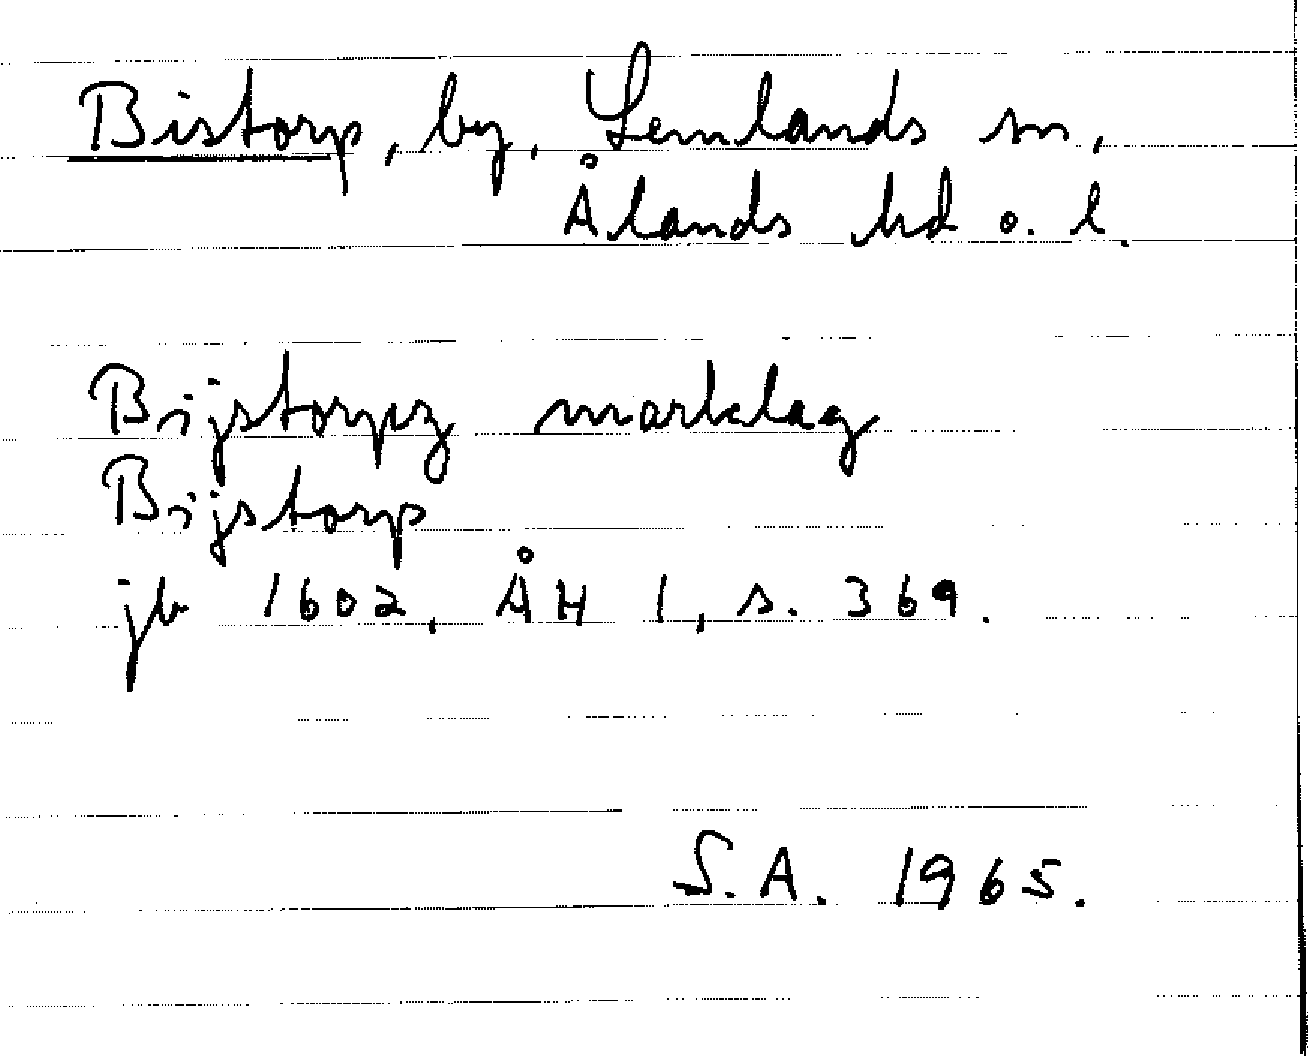 Bistorp, by, Lemlands sn,
Ålands hd o. l.
Bijstorpz marklag
Bijstorp
jb 1602, ÅH 1, s. 369.
S.A. 1965.